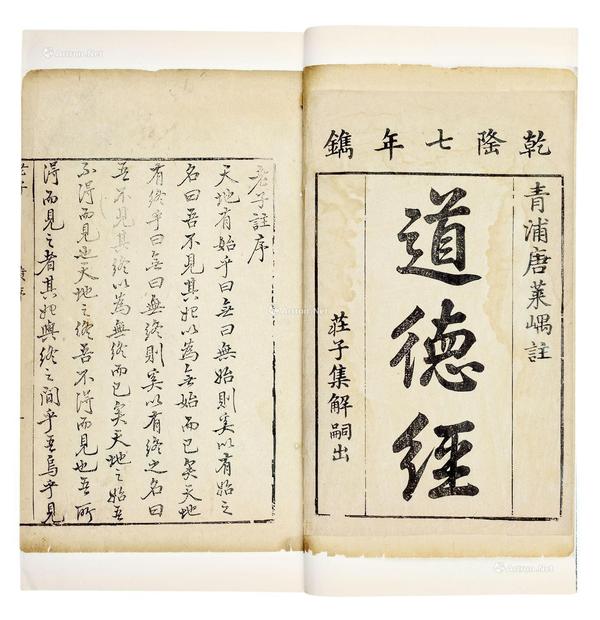 乾隆七年鐫
青浦唐萊嵎註
道德經
莊子集解嗣出
老子註序
天地有始乎曰无曰無始則奚以有始之
名曰吾不見其始以為无始而已矣天地
有終乎曰无曰無終則奚以有終之名曰
吾不見其終以為無終而已矣天地之始吾
不得而見也天地之終吾不得而見也吾所
得而見之者其始與終之間乎吾烏乎見
老子
Artron.Net
Artron.Net
Artron.Net
Artron.Net